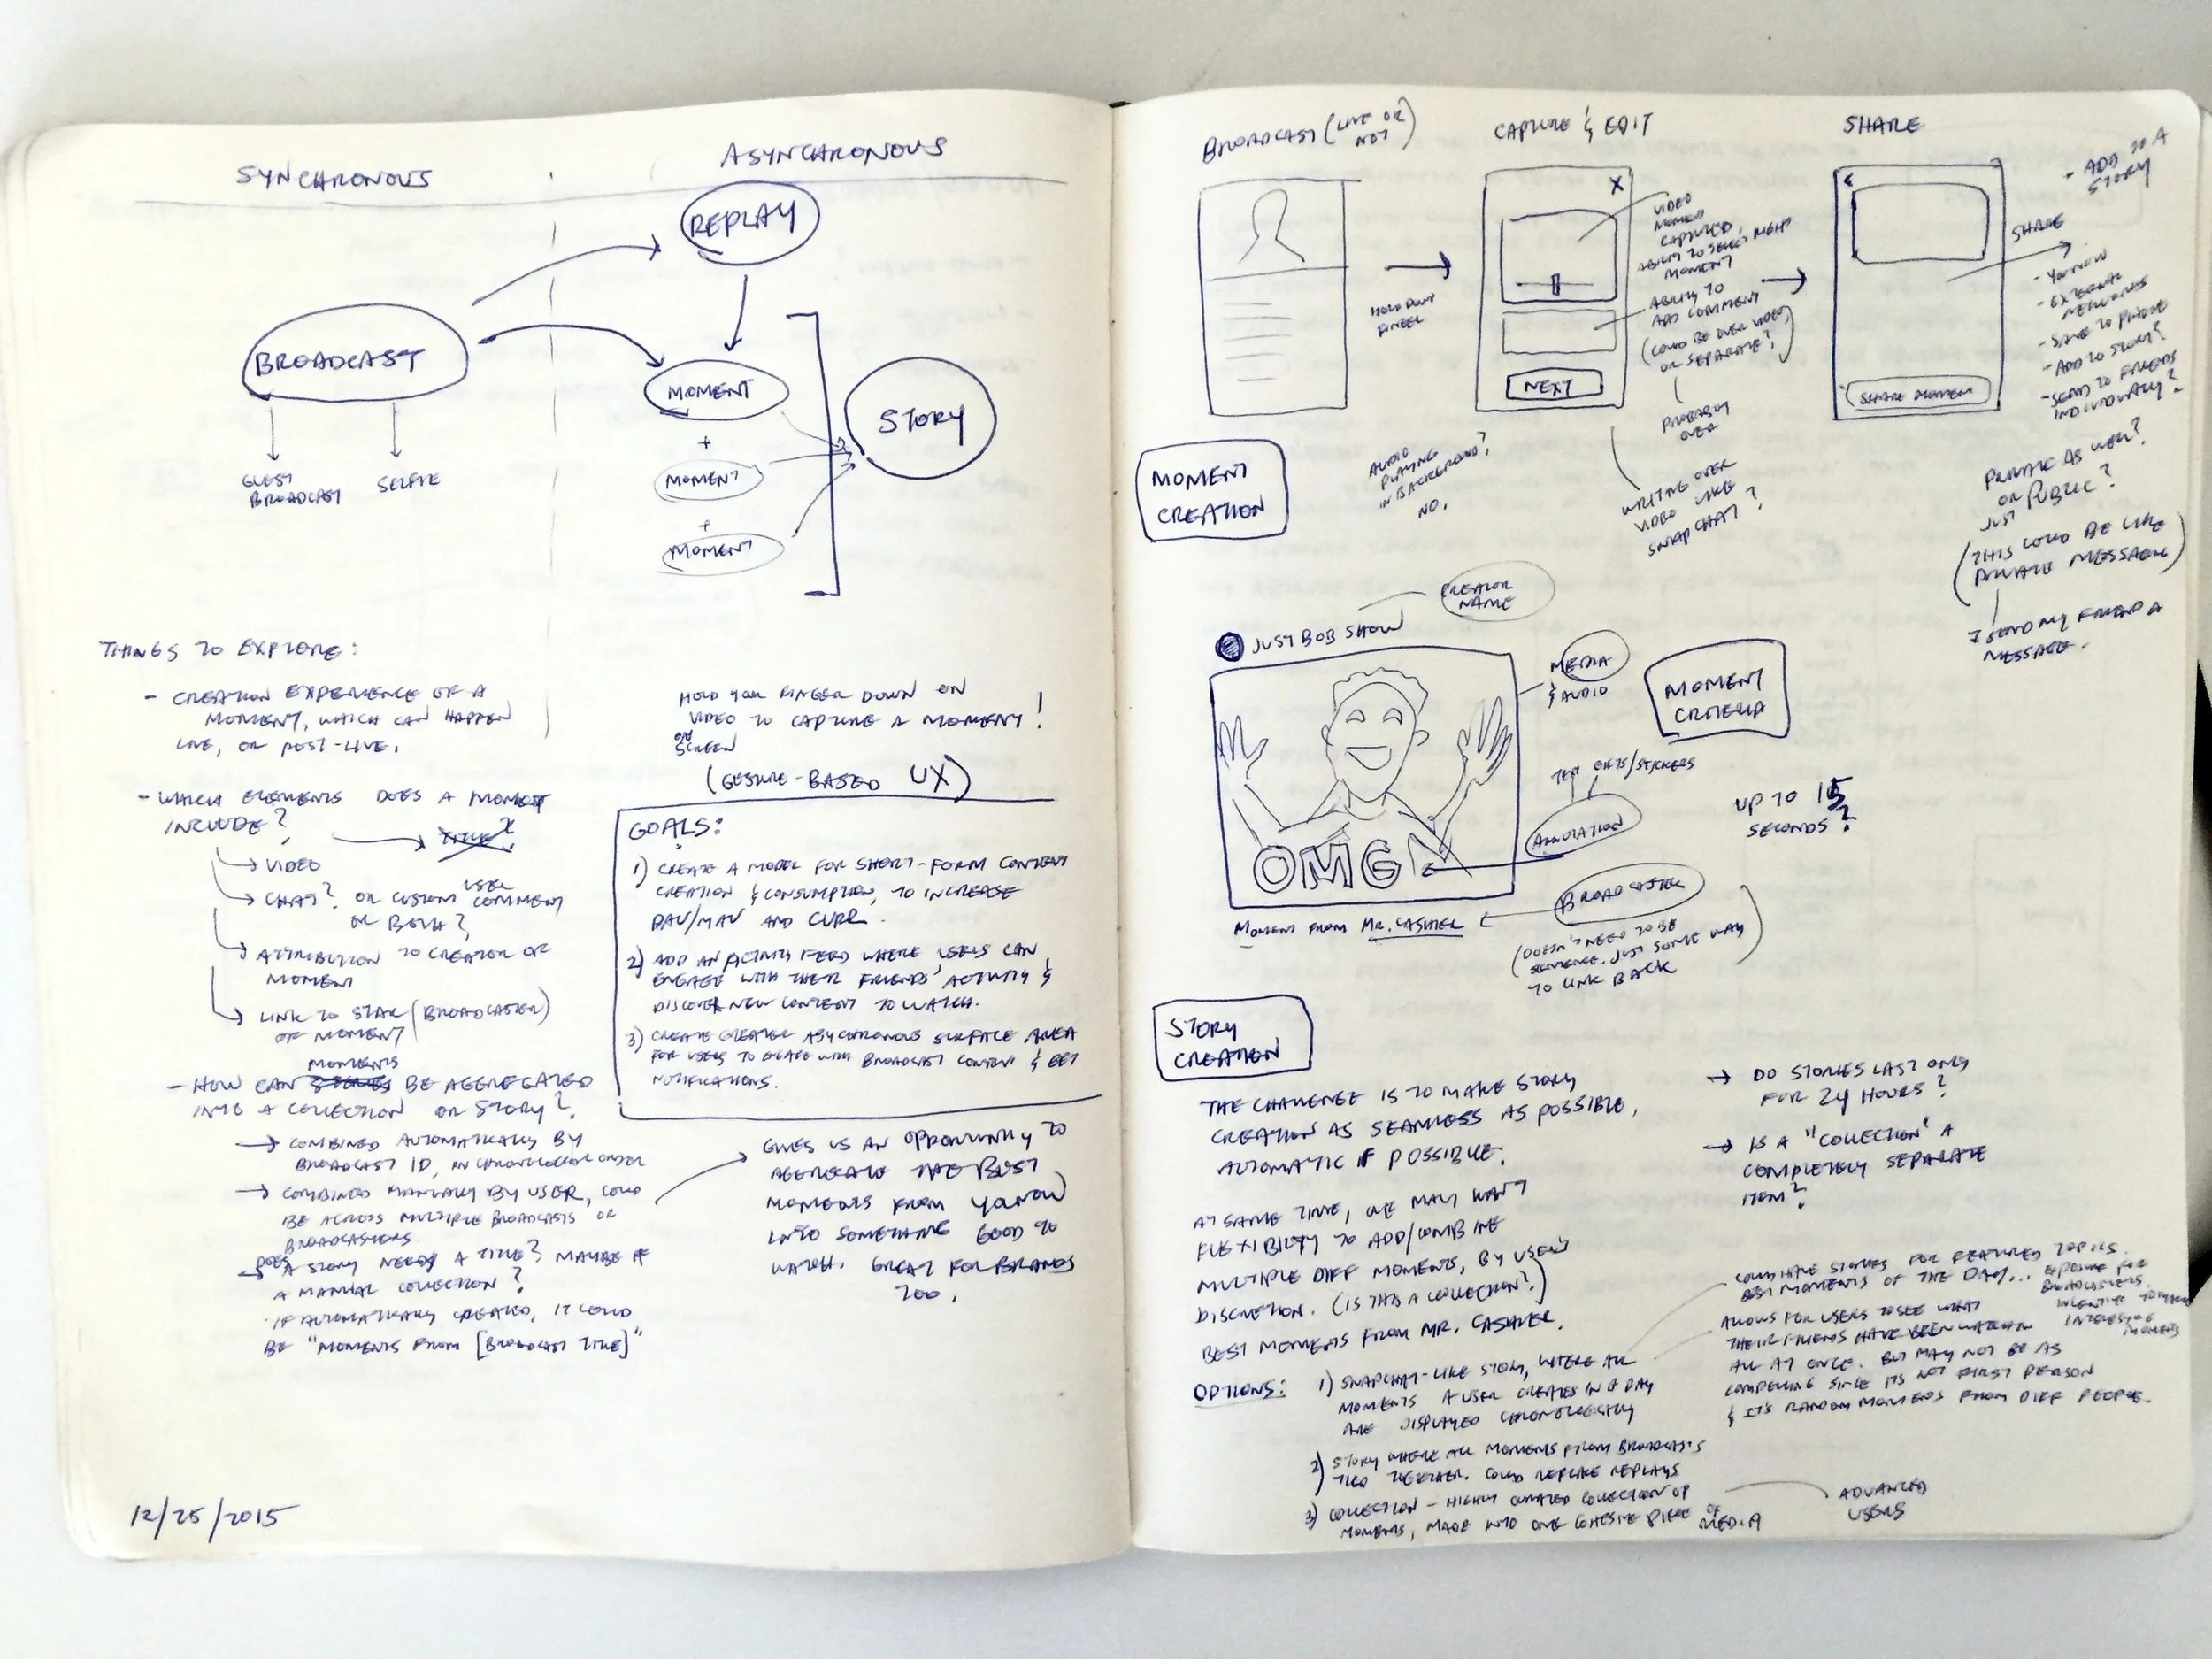 SYNCHRONOUS
ASYNCHRONOUS
REPLAY
BROADCAST
GUEST
BROADCAST
SELFIE
MOMENT
+
MOMENT
+
MOMENT
STORY
THINGS TO EXPLORE:
- CREATION EXPERIENCE OF A
MOMENT, WHICH CAN HAPPEN
LIVE, OR POST-LIVE.
- WHICH ELEMENTS DOES A MOMENT
INCLUDE?
TITLE?
VIDEO
CHAT? OR CUSTOM USER COMMENT
OR BOTH?
ATTRIBUTION TO CREATOR OF
MOMENT
LINK TO STAR (BROADCASTER)
OF MOMENT
- HOW CAN MOMENTS BE AGGREGATED
INTO A COLLECTION OR STORY?
→ COMBINED AUTOMATICALLY BY
BROADCAST ID, IN CHRONOLOGICAL ORDER
→ COMBINED MANUALLY BY USER, COULD
BE ACROSS MULTIPLE BROADCASTS OR
BROADCASTERS
→ DOES A STORY NEED A TITLE? MAYBE IF
A MANUAL COLLECTION?
IF AUTOMATICALLY CREATED, IT COULD
BE "MOMENTS FROM [BROADCAST TITLE]"
12/25/2015
HOLD YOUR FINGER DOWN ON
VIDEO TO CAPTURE A MOMENT!
ON
SCREEN
(GESTURE-BASED UX)
GOALS:
1) CREATE A MODEL FOR SHORT-FORM CONTENT
CREATION & CONSUMPTION, TO INCREASE
DAU/MAU AND CURR.
2) ADD AN ACTIVITY FEED WHERE USERS CAN
ENGAGE WITH THEIR FRIENDS' ACTIVITY &
DISCOVER NEW CONTENT TO WATCH.
3) CREATE GREATER ASYCHRONOUS SURFACE AREA
FOR USERS TO ENGAGE WITH BROADCAST CONTENT & GET
NOTIFICATIONS.
GIVES US AN OPPORTUNITY TO
AGGREGATE THE BEST
MOMENTS FROM YOUNOW
INTO SOMETHING GOOD TO
WATCH. GREAT FOR BRANDS
TOO.
BROADCAST (LIVE OR
NOT)
CAPTURE & EDIT
SHARE
HOLD DOWN
FINGER
X
NEXT
VIDEO
MOMENT
CAPTURED,
ABILITY TO SELECT RIGHT
MOMENT
ABILITY TO
ADD COMMENT
(COULD BE OVER VIDEO,
OR SEPARATE?)
PROBABLY
OVER
WRITING OVER
VIDEO LIKE
SNAPCHAT?
AUDIO
PLAYING
IN BACKGROUND?
NO.
SHARE MOMENT
- ADD TO A
STORY
SHARE
- YOUNOW
- EXTERNAL
NETWORKS
- SAVE TO PHONE
- ADD TO STORY?
- SEND TO FRIENDS
INDIVIDUALLY?
PRIVATE AS WELL?
OR
JUST PUBLIC?
(THIS COULD BE LIKE
PRIVATE MESSAGING)
I SEND MY FRIEND A
MESSAGE.
MOMENT
CREATION
CREATOR
NAME
JUST BOB SHOW
MEDIA
& AUDIO
MOMENT
CRITERIA
TEXT GIFTS/STICKERS
ANNOTATION
UP TO 15
SECONDS?
OMG
BROADCASTER
MOMENT FROM MR. CASHIER
(DOESN'T NEED TO BE
SENTENCE. JUST SOME WAY
TO LINK BACK)
STORY
CREATION
THE CHALLENGE IS TO MAKE STORY
CREATION AS SEAMLESS AS POSSIBLE,
AUTOMATIC IF POSSIBLE.
AT SAME TIME, WE MAY WANT
FLEXIBILITY TO ADD/COMBINE
MULTIPLE DIFF MOMENTS, BY USER'S
DISCRETION. (IS THIS A COLLECTION?)
BEST MOMENTS FROM MR. CASHIER.
→ DO STORIES LAST ONLY
FOR 24 HOURS?
→ IS A "COLLECTION" A
COMPLETELY SEPARATE
ITEM?
OPTIONS: 1) SNAPCHAT-LIKE STORY, WHERE ALL
MOMENTS A USER CREATES IN A DAY
ARE DISPLAYED CHRONOLOGICALLY
2) STORY WHERE ALL MOMENTS FROM BROADCASTS
TIED TOGETHER. COULD REPLACE REPLAYS
3) COLLECTION - HIGHLY CURATED COLLECTION OF
MOMENTS, MADE INTO ONE COHESIVE PIECE OF MEDIA
ADVANCED
USERS
COULD HAVE STORIES FOR FEATURED TOPICS.
BEST MOMENTS OF THE DAY...
EXPOSURE FOR
BROADCASTERS.
INCENTIVE TO
INTERESTING
MOMENTS
ALLOWS FOR USERS TO SEE WHAT
THEIR FRIENDS HAVE BEEN WATCHING
ALL AT ONCE. BUT MAY NOT BE AS
COMPELLING SINCE ITS NOT FIRST PERSON
& IT'S RANDOM MOMENTS FROM DIFF PEOPLE.